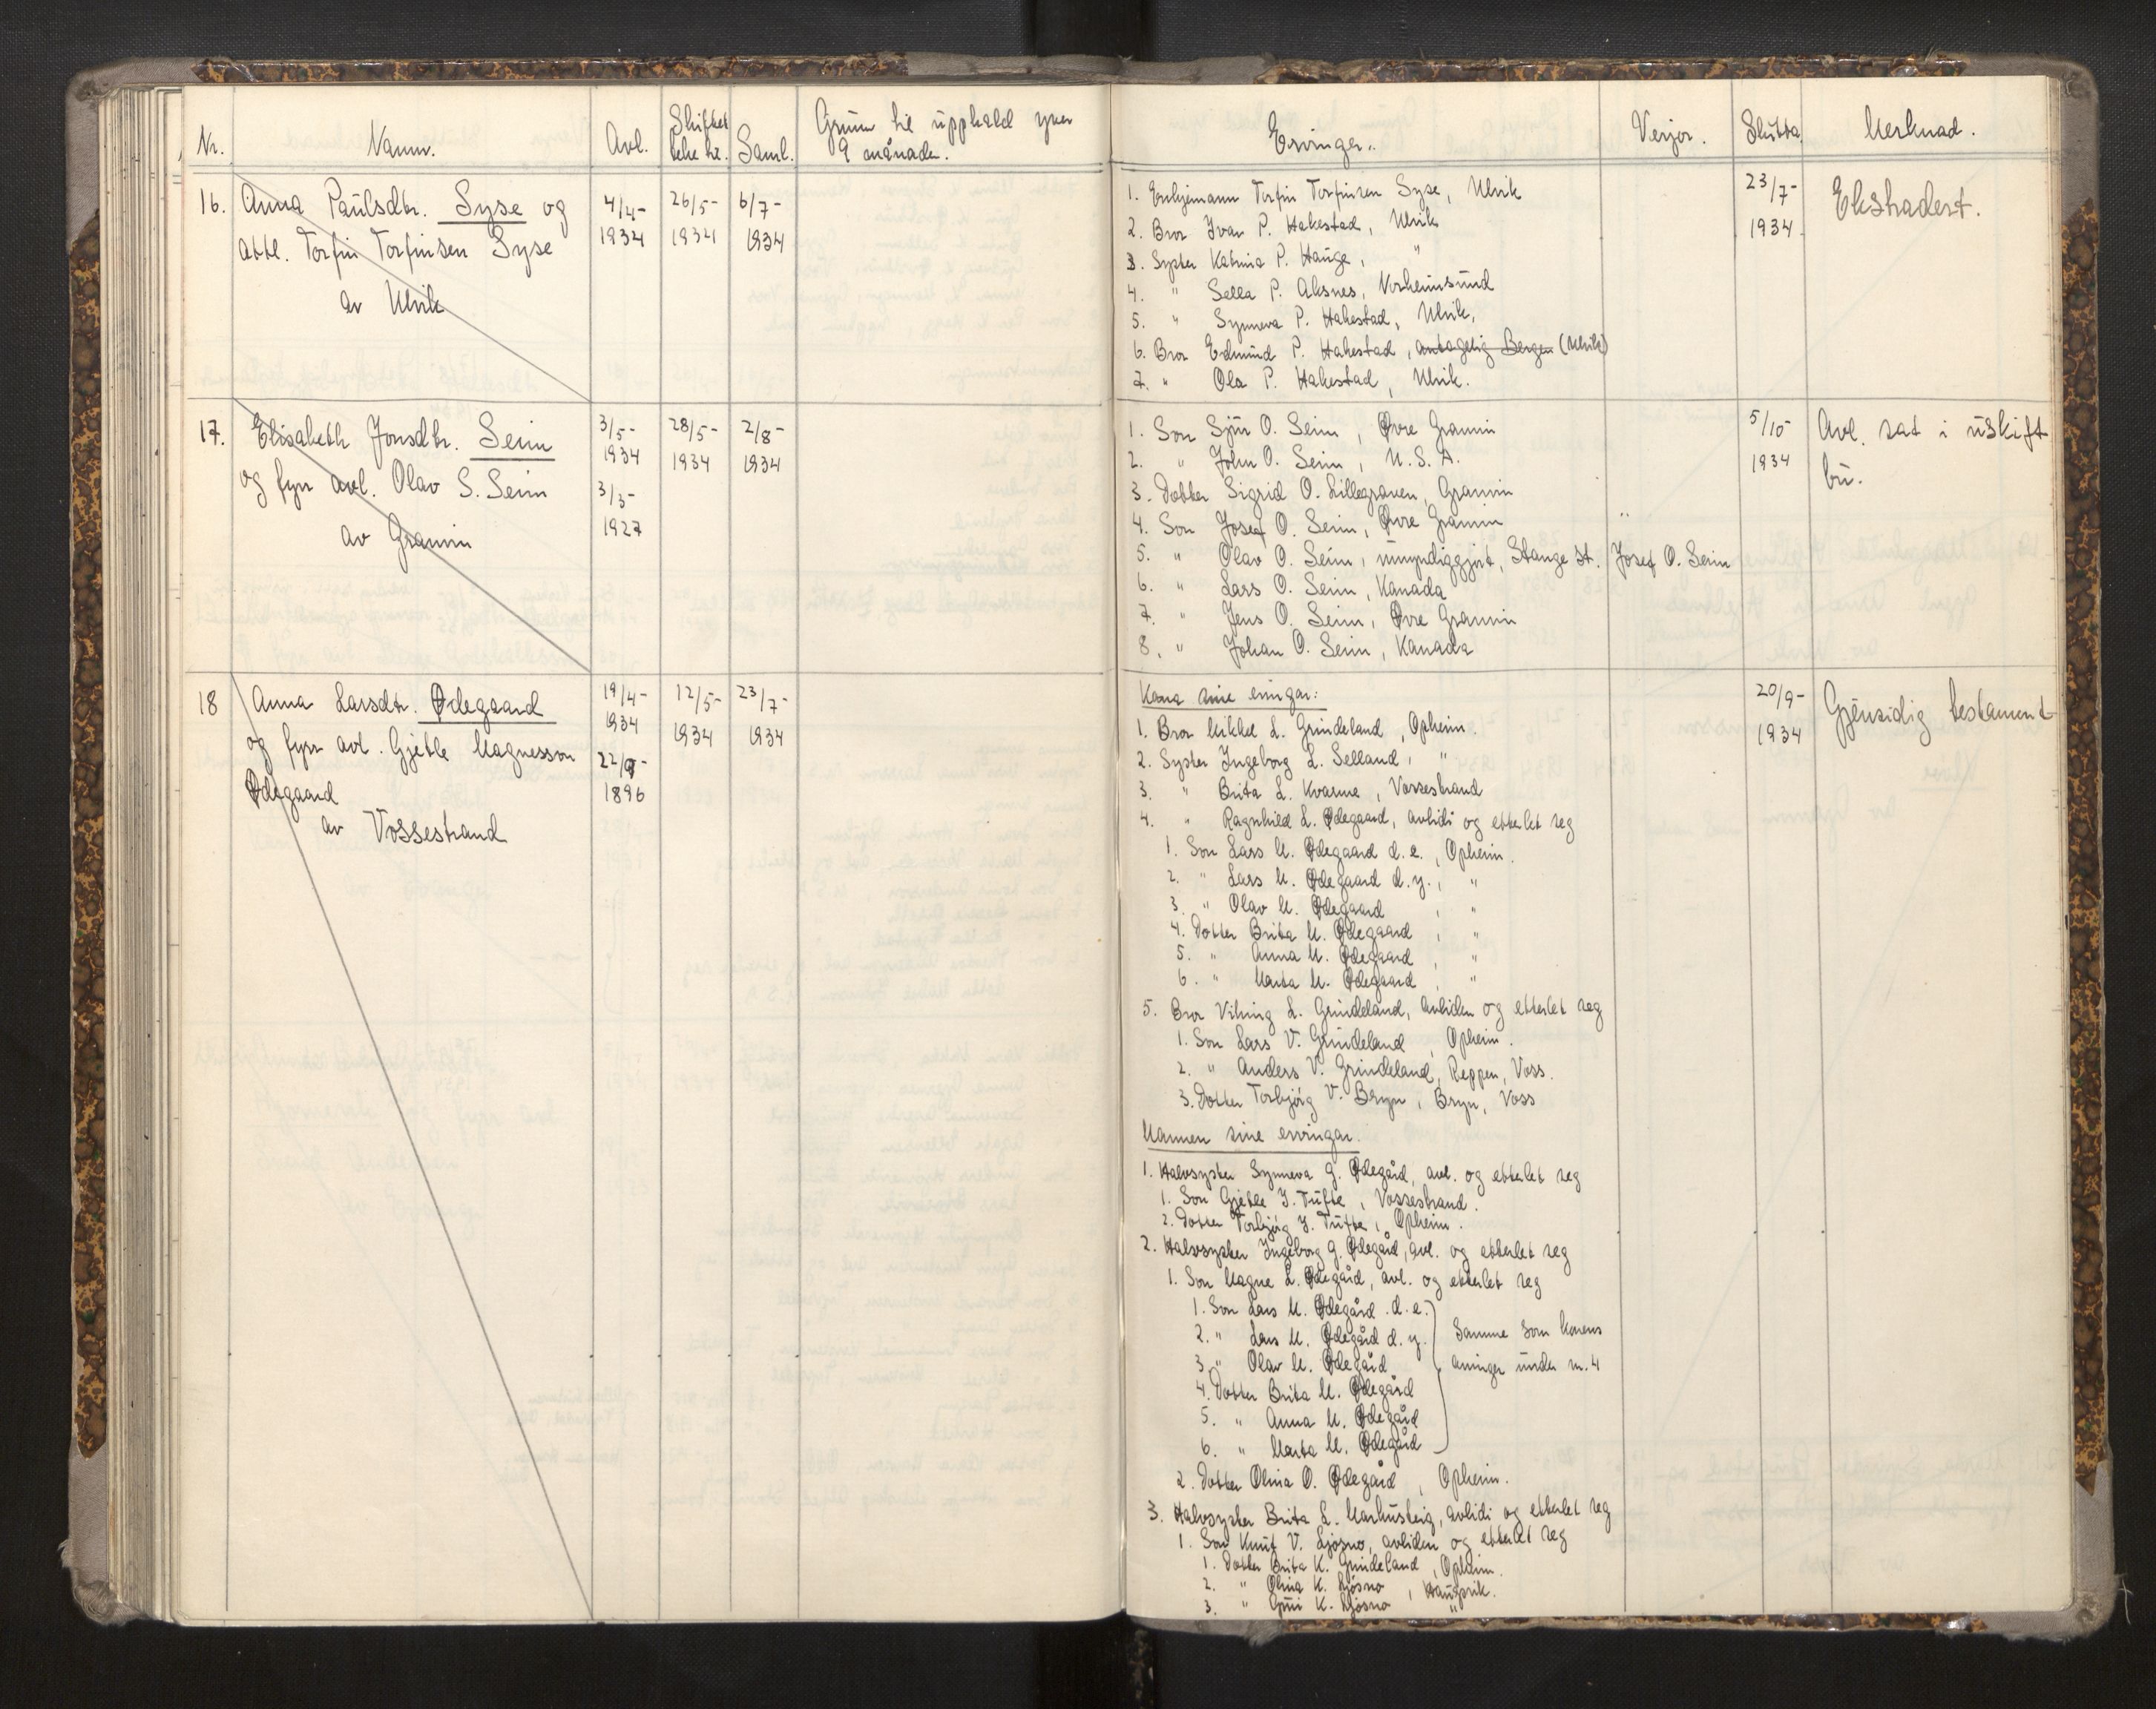 Nr. Namn. Avl. Skiftet bihe hr. Saml. Grunn til upphald yver
9 månader.
16. Anna Paulsdtr. Syse og 4/4- 26/5- 6/7-
attl. Torfin Torfinsen Syse 1934 1934 1934
av Ulvik
17. Elisabeth Jonsdtr. Seim 3/5- 28/5- 2/8-
1934 1934 1934
og fyrr avl. Olav S. Seim 3/3-
av Granvin 1927
18 Anna Larsdtr. Ødegaard 19/4- 12/5- 23/7-
1934 1934 1934
og fyrr avl. Gjetle Magnesson 22/9-
Ødegaard 1896
av Vossestrand
Ervingar. Verjor. Slutta. Merknad.
1. Enkjemann Torfin Torfinsen Syse, Ulvik 23/7- Ekstradert.
2. Bror Ivar P. Hakestad, Ulvik 1934
3. Syster Katrina P. Hauge, "
4. " Sella P. Aksnes, Norheimsund
5. " Synneva P. Hakestad, Ulvik,
6. Bror Edmund P. Hakestad, antagelig Bergen (Ulvik)
7. " Ola P. Hakestad, Ulvik.
1. Son Sjur O. Seim, Øvre Granvin 5/10- Avl. sat i uskift
2. " John O. Seim, U.S.A. 1934 bu.
3. Dotter Sigrid O. Lillegraven, Granvin
4. Son Josef O. Seim, Øvre Granvin "
5. " Olav O. Seim, umyndiggjort, Stange st. Josef O. Seim
6. " Lars O. Seim, Kanada
7. " Jens O. Seim, Øvre Granvin
8. " Johan O. Seim, Kanada
Kona sine ervingar: 20/9- Gjensidig testament
1. Bror Mikkel L. Grindeland, Opheim. 1934
2. Syster Ingeborg L. Selland, "
3. " Brita L. Kvarme, Vossestrand
4. " Ragnhild L. Ødegaard, avlidi og etterlet seg
1. Son Lars M. Ødegaard d.e., Opheim.
2. " Lars M. Ødegaard d.y., "
3. " Olav M. Ødegaard, "
4. Dotter Brita M. Ødegaard, "
5. " Anna M. Ødegaard, "
6. " Marta M. Ødegaard, "
5. Bror Viking L. Grindeland, avliden og etterlet seg
1. Son Lars V. Grindeland, Opheim.
2. " Anders V. Grindeland, Reppen, Voss.
3. Dotter Torbjørg V. Bryn, Bryn, Voss
Mannen sine ervingar.
1. Halvsyster Synneva G. Ødegård, avl. og etterlet seg
1. Son Gjetle I. Tufte, Vossestrand.
2. Dotter Torbjørg I. Tufte, Opheim.
2. Halvsyster Ingeborg G. Ødegård, avl. og etterlet seg
1. Son Magne L. Ødegård, avl. og etterlet seg
1. Son Lars M. Ødegård d.e.
2. " Lars M. Ødegård d.y. Samme som konens
3. " Olav M. Ødegård arvinger under nr. 4
4. Dotter Brita M. Ødegård
5. " Anna M. Ødegård
6. " Marta M. Ødegård
2. Dotter Olina O. Ødegård, Opheim.
3. Halvsyster Brita L. Markusteig, avlidi og etterlet seg
1. Son Knut V. Ljosno, avliden og etterlet seg
1. Dotter Brita K. Grindeland, Opheim.
2. " Olina K. Ljosno, Haugsvik.
3. " Guri K. Ljosno "